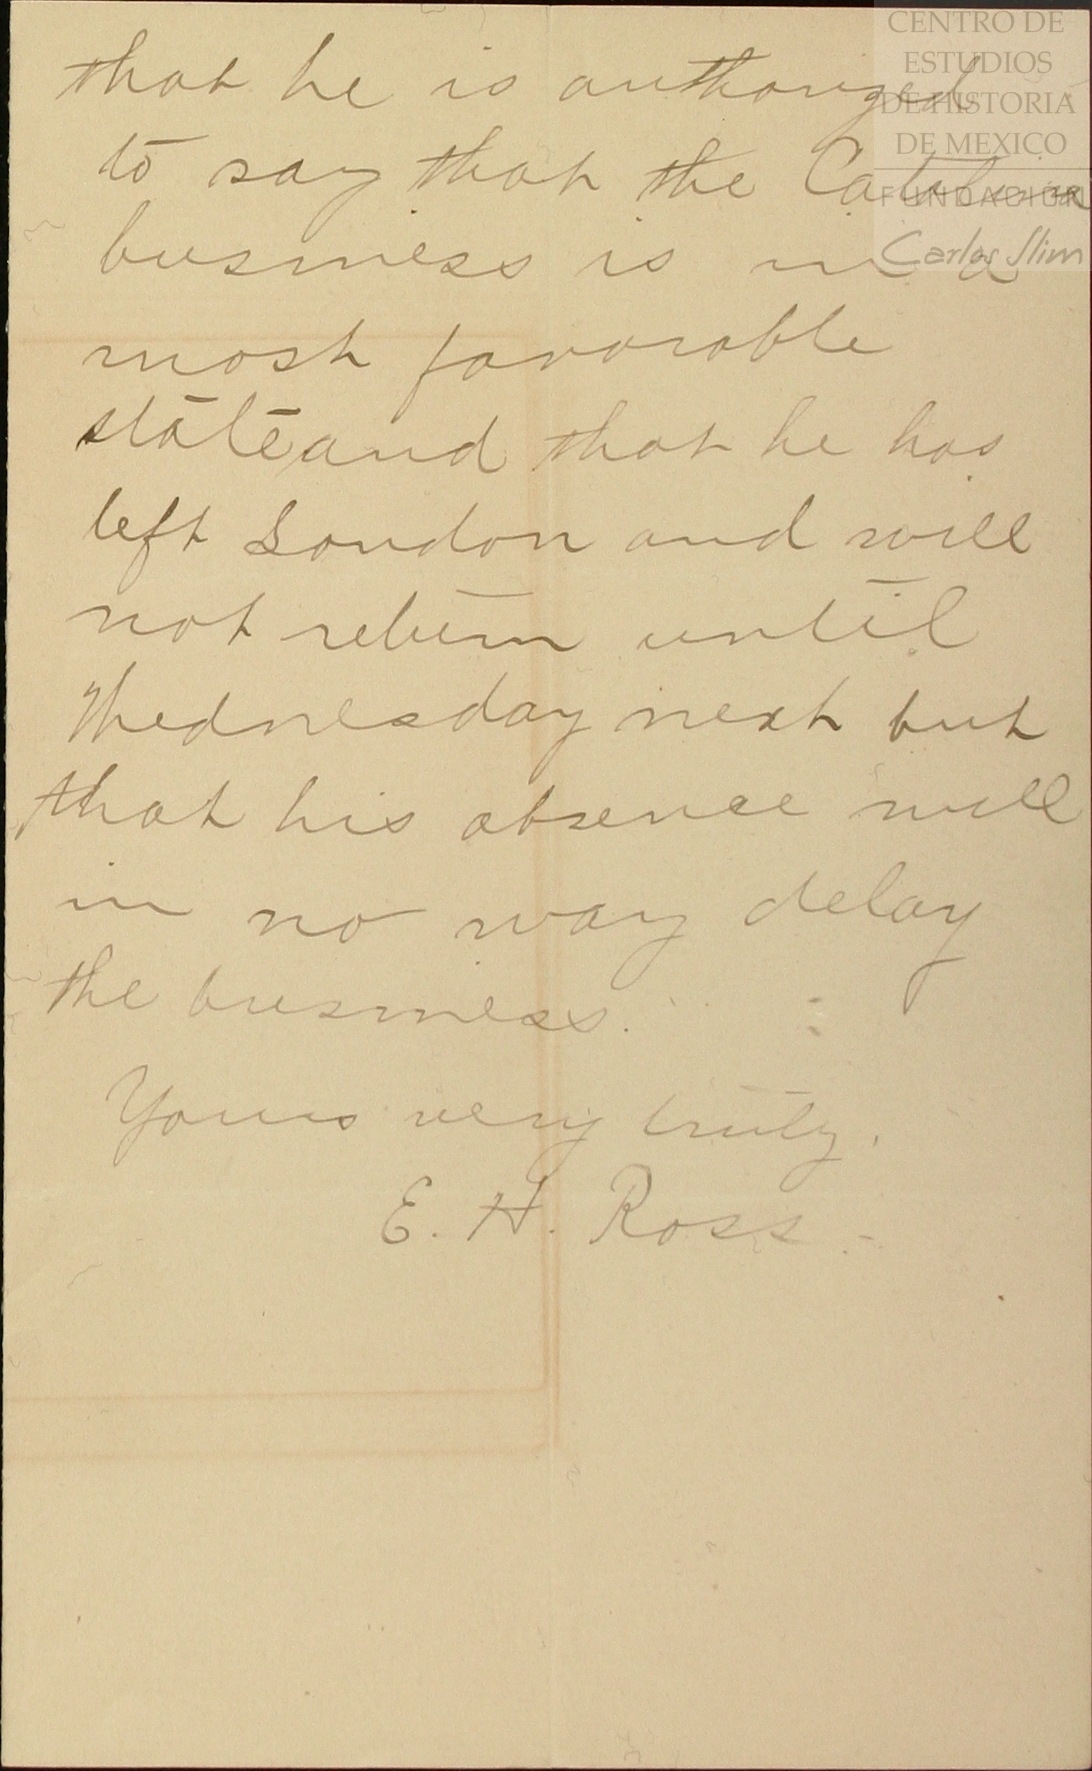 that he is authorized
to say that the Catalina
business is in a
most favorable
state and that he has
left London and will
not return until
Wednesday next but
that his absence will
in no way delay
the business.
Yours very truly,
E. H. Ross.
CENTRO DE
ESTUDIOS
DE HISTORIA
DE MEXICO
FUNDACIÓN
Carlos Slim